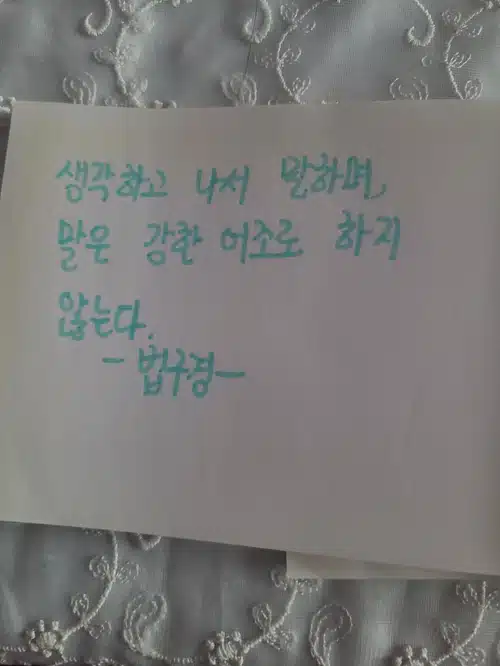 생각하고 나서 말하며,
말은 강한 어조로 하지
않는다.
- 법구경 -